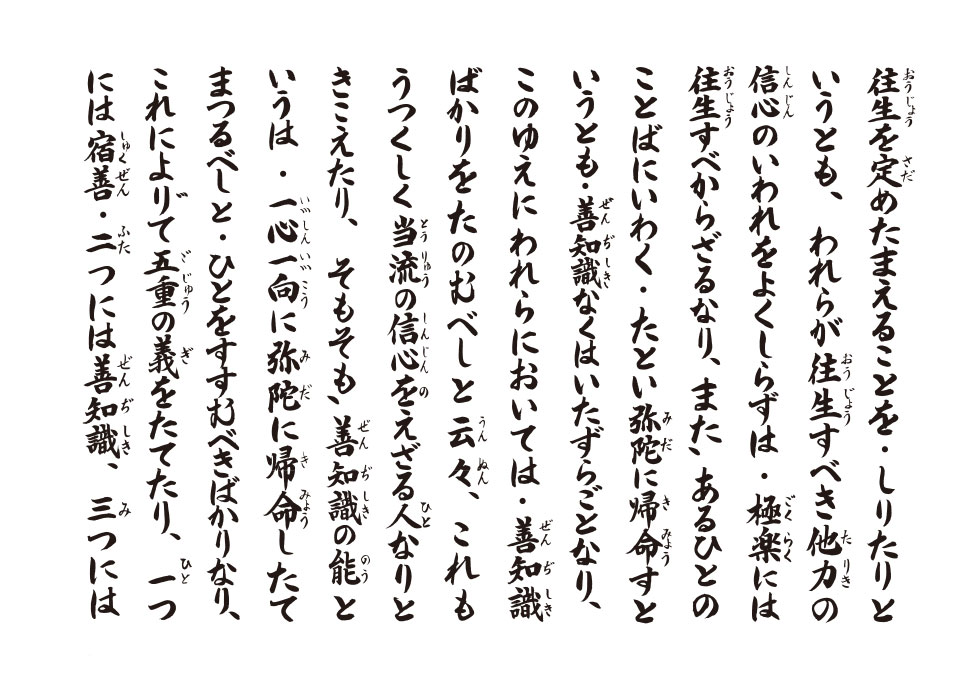 往生を定めたまえることを・しりたりと
いうとも、われらが往生すべき他力の
信心のいわれをよくしらずは・極楽には
往生すべからざるなり、また、あるひとの
ことばにいわく・たとい弥陀に帰命すと
いうとも・善知識なくはいたずらごとなり、
このゆえにわれらにおいては・善知識
ばかりをたのむべしと云々、これも
うつくしく当流の信心をえざる人なりと
きこえたり、そもそも、善知識の能と
いうは・一心一向に弥陀に帰命したて
まつるべしと・ひとをすすむべきばかりなり、
これによりて五重の義をたてたり、一つ
には宿善・二つには善知識、三つには